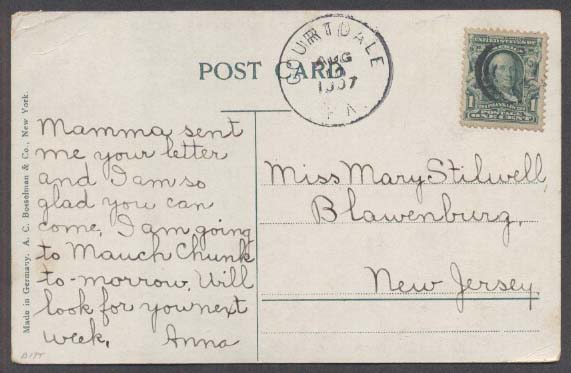 POST CARD
COURTDALE
AUG
1907
PA.
1 1
POSTAGE
ONE CENT
Mamma sent
me your letter
and I am so
glad you can
come, I am going
to Mauch Chunk
to-morrow. Will
look for you next
week. Anna
Miss Mary Stilwell,
Blawenburg,
New Jersey.
Made in Germany. A. C. Bosselman & Co., New York.